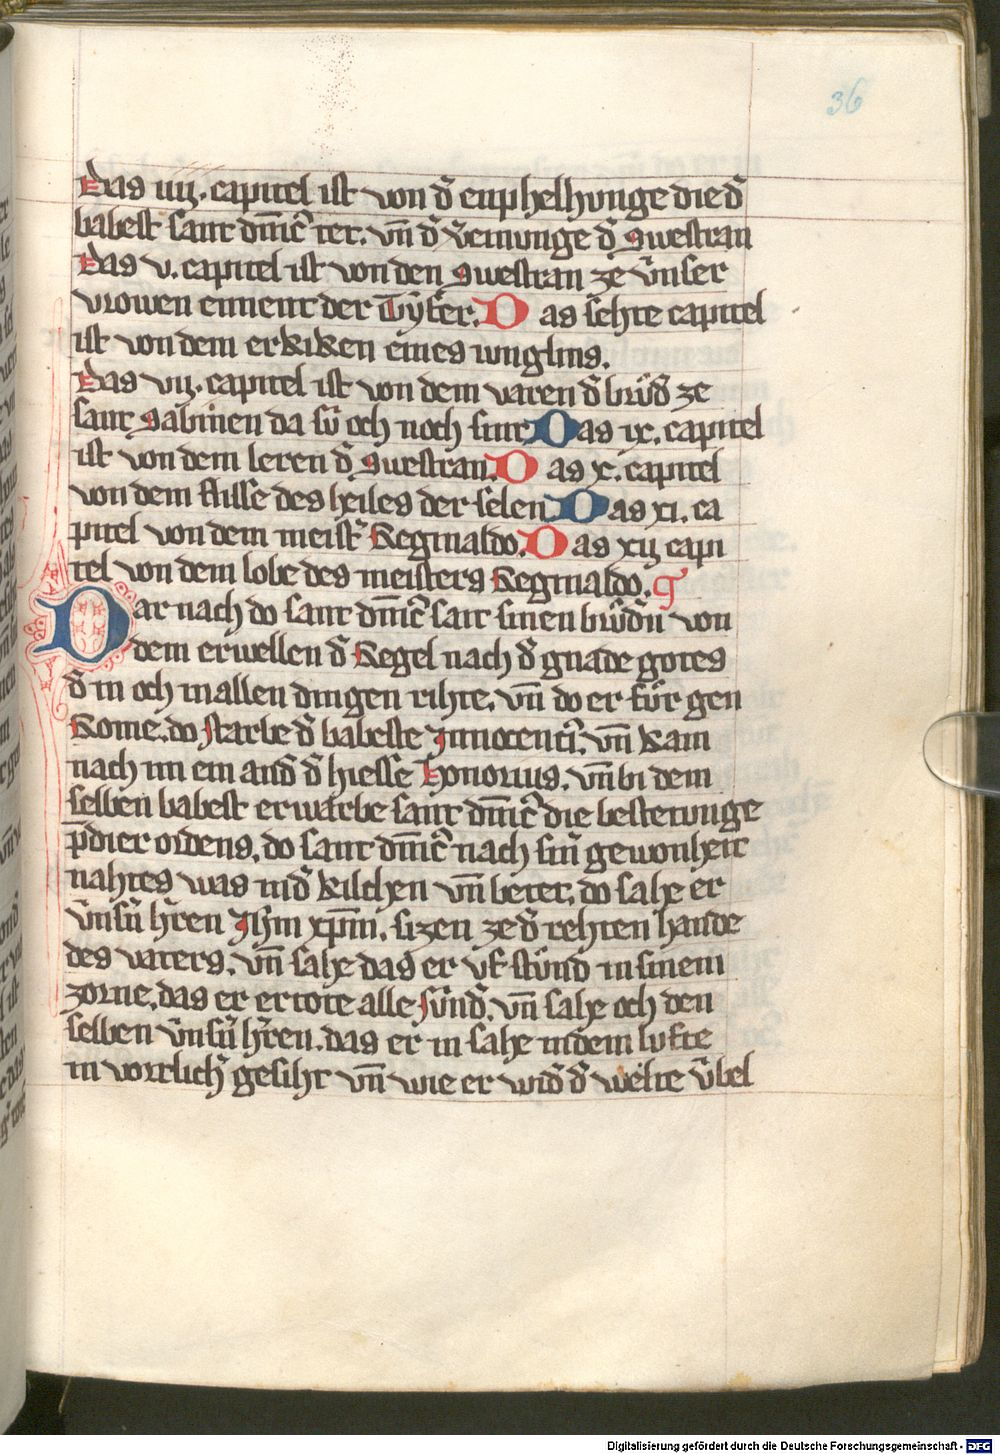 36
Das iiij. capitel ist von d̄ enphelhunge die d̄
babest sant dm̄ic̄ tet. vn̄ d̄ v̄einunge d̄ swestran
Das v. capitel ist von den swestran ze v̄nser
vrowen enneut der Tyf̄er. Das sehte capitel
ist von dem erkiken eines iunglins.
Das vij. capitel ist von dem varen d̄ brůd̄ ze
sant sabinen da sú och noch sint Das ix. capitel
ist von dem leren d̄ swestran. Das x. capitel
von dem flisse des heiles der selen Das xi. ca
pitel von dem meist̄ Reginaldo. Das xij capi
tel von dem lobe des meisters Reginaldo.
Dar nach do sant dm̄ic̄ sait sinen brůdn̄ von
dem erwellen d̄ Regel nach d̄ gnade gotes
d̄ in och in allen dingen rihte. vn̄ do er fůr gen
Rome. do starbe d̄ babeste Innocenci᷒. vn̄ kam
nach im ein and̄ d̄ hiesse Honorius. vn̄ bi dem
selben babest erwarbe sant dm̄ic̄ die bestetunge
p̄dier ordens. do sant dm̄ic̄ nach sin̄ gewonheit
nahtes was in d̄ kilchen vn̄ betet. do sahe er
v̄nsn̄ h̄ren Ihm̄ xp̄m. sizen ze d̄ rehten hande
des vaters. vn̄ sahe das er vf stůnd in sinem
zorne. das er ertote alle sůnd̄. vn̄ sahe och den
selben v̄nsn̄ h̄ren. das er in sahe in dem lufte
in vortlich̄ gesiht vn̄ wie er wid̄ d̄ welte v̄bel
Digitalisierung gefördert durch die Deutsche Forschungsgemeinschaft - DFG